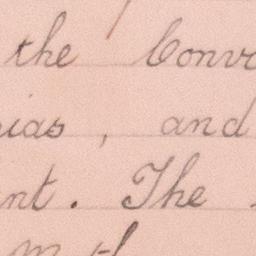 the Conv
ias, and
nt. The